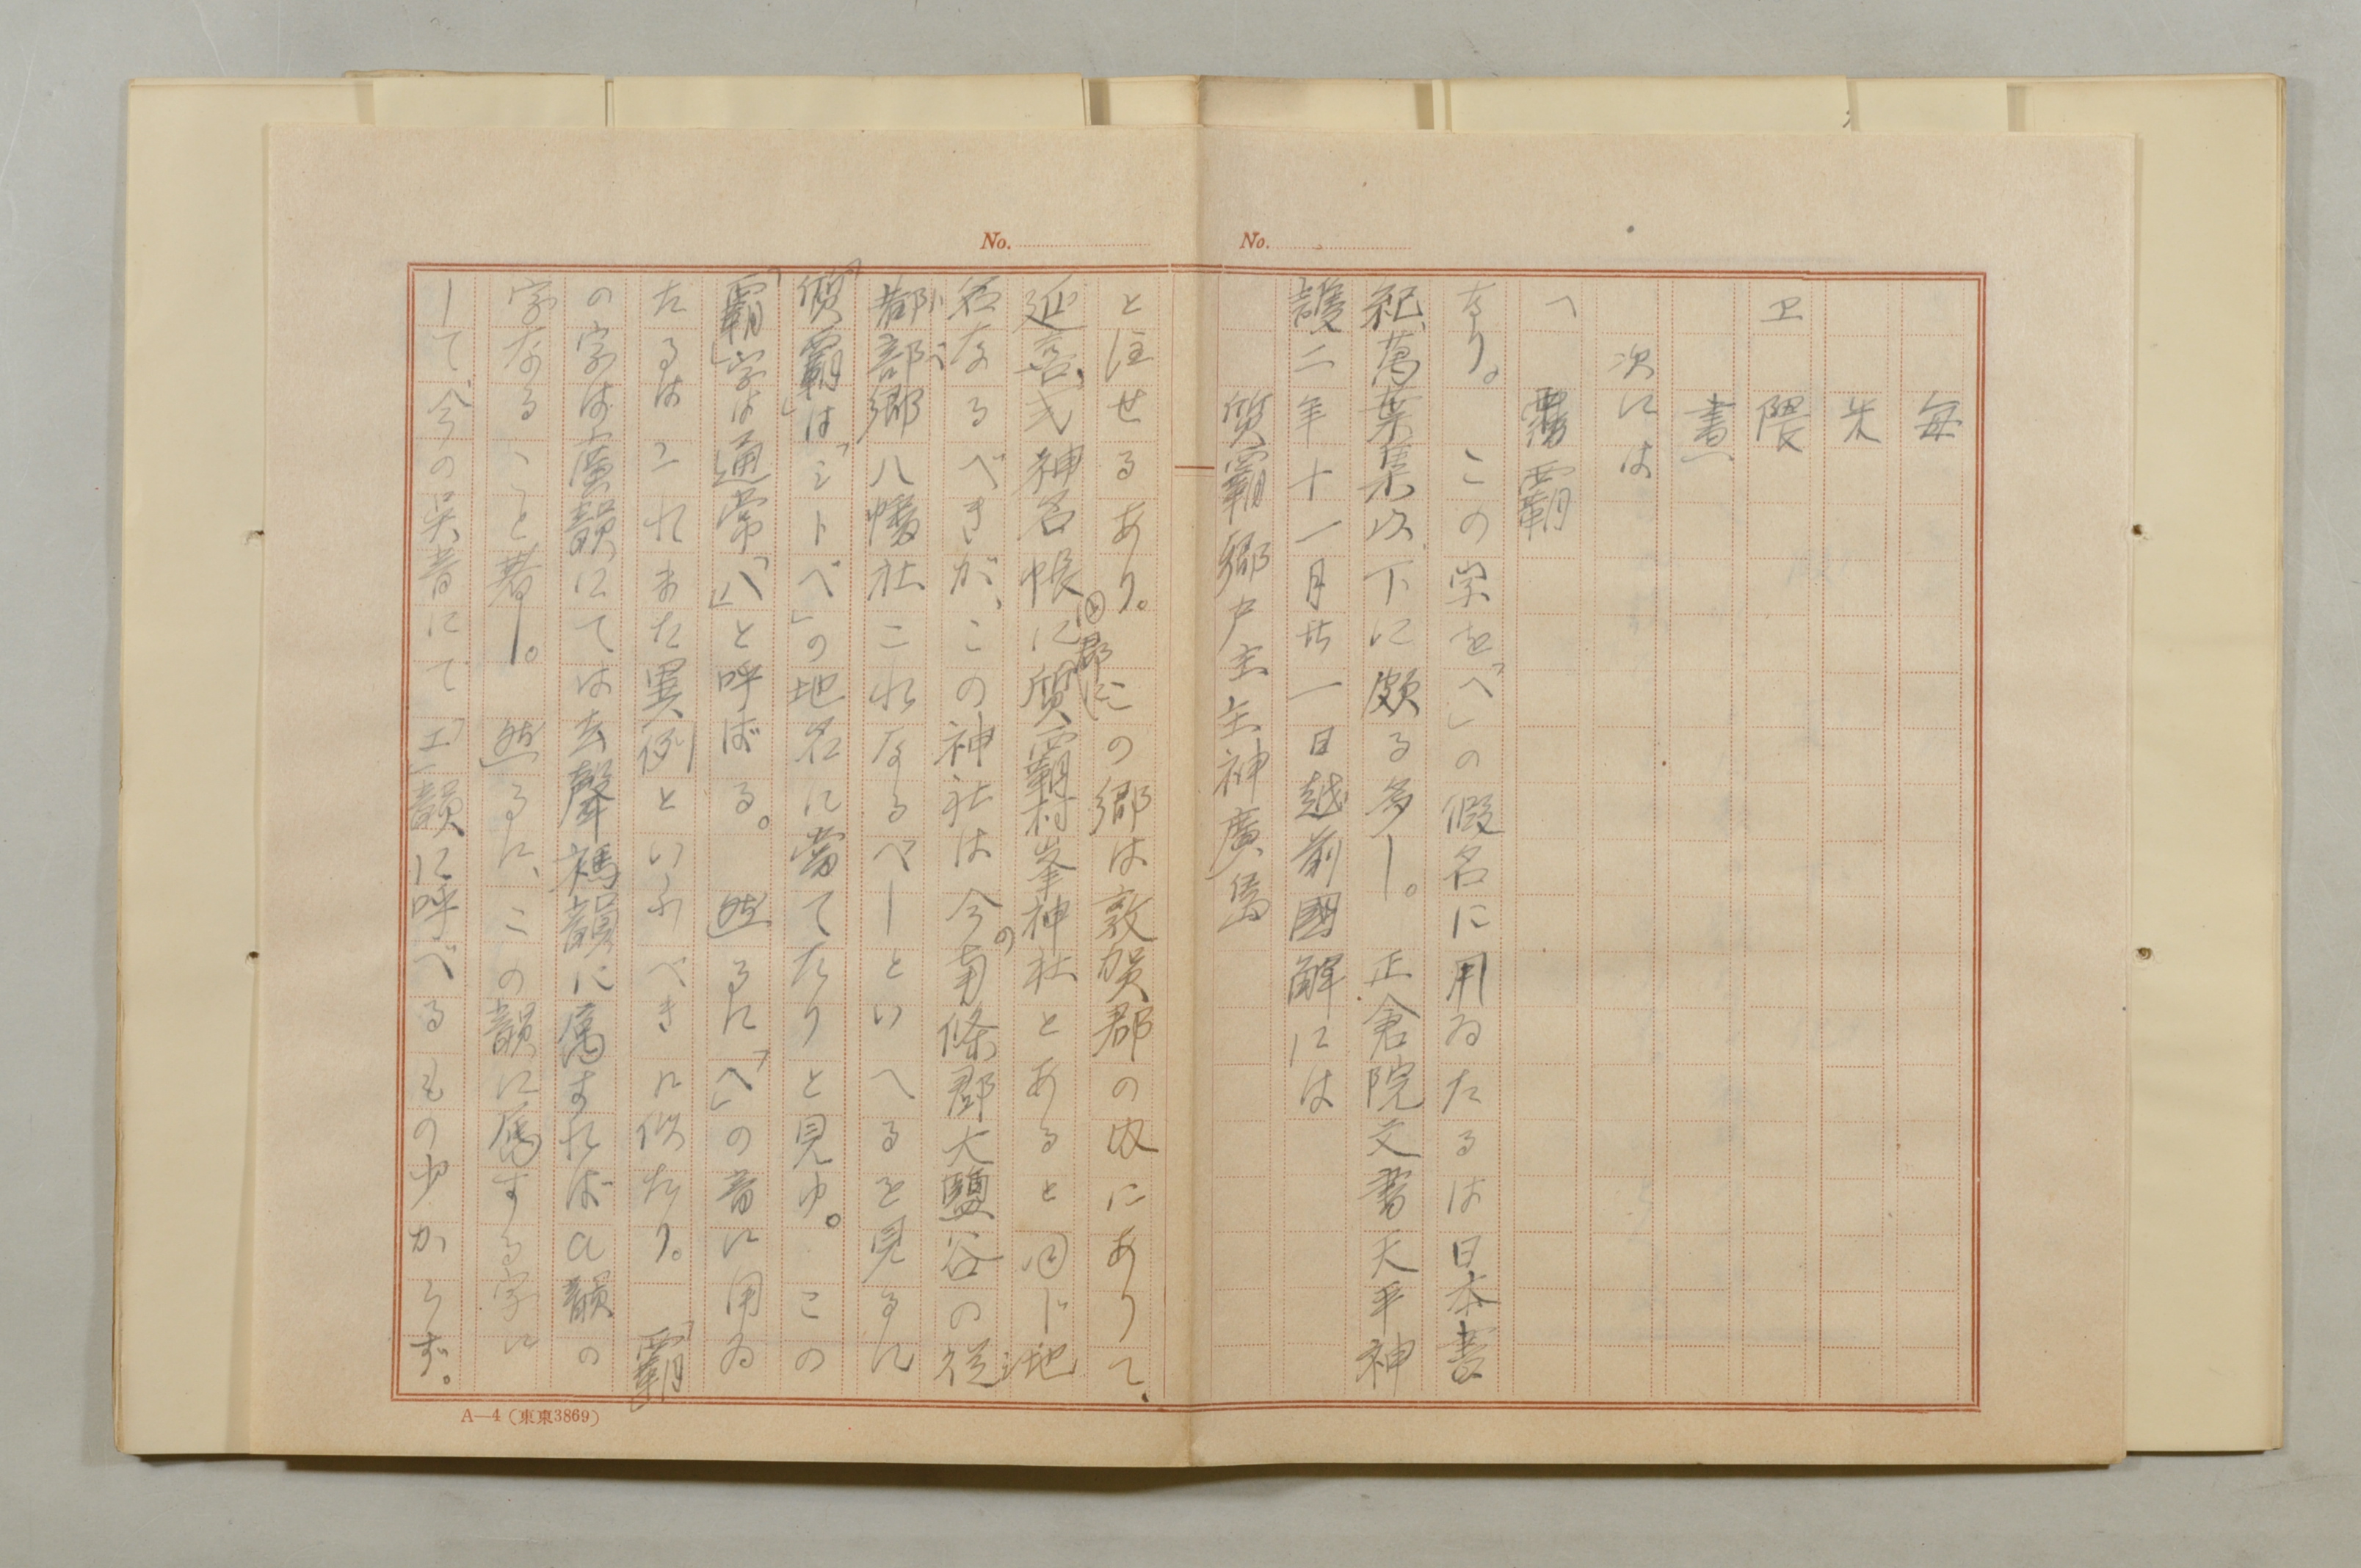 No.
No.
毎
米
ヱ 隈
畫
次には
へ 覇
なり。 この字を「へ」の假名に用ゐたるは日本書
紀、萬葉集以下に頗る多し。 正倉院文書天平神
護二年十一月廿一日越前國解には
質覇郷戸主主神廣島
と注せるあり。 この郷は敦賀郡の内にありて、
延喜式神名帳に同郡に質覇村峯神社とあると同じ地
名なるべきが、この神社は今の南條郡大鹽谷の
都部郷八幡社これなるべしといへるを見るに
「質覇」は「シトベ」の地名に當てたりと見ゆ。 この
「覇」字は通常「ハ」と呼ばる。 然るに「へ」の音に用ゐ
たるはこれまた異例といふべきに似たり。 「覇」
の字は廣韻にては去聲禡韻に属すればa韻の
字なること著し。 然るに、この韻に属する字に
して今の呉音にて「エ」韻に呼べるもの少からず。
A—4 (東東3869)